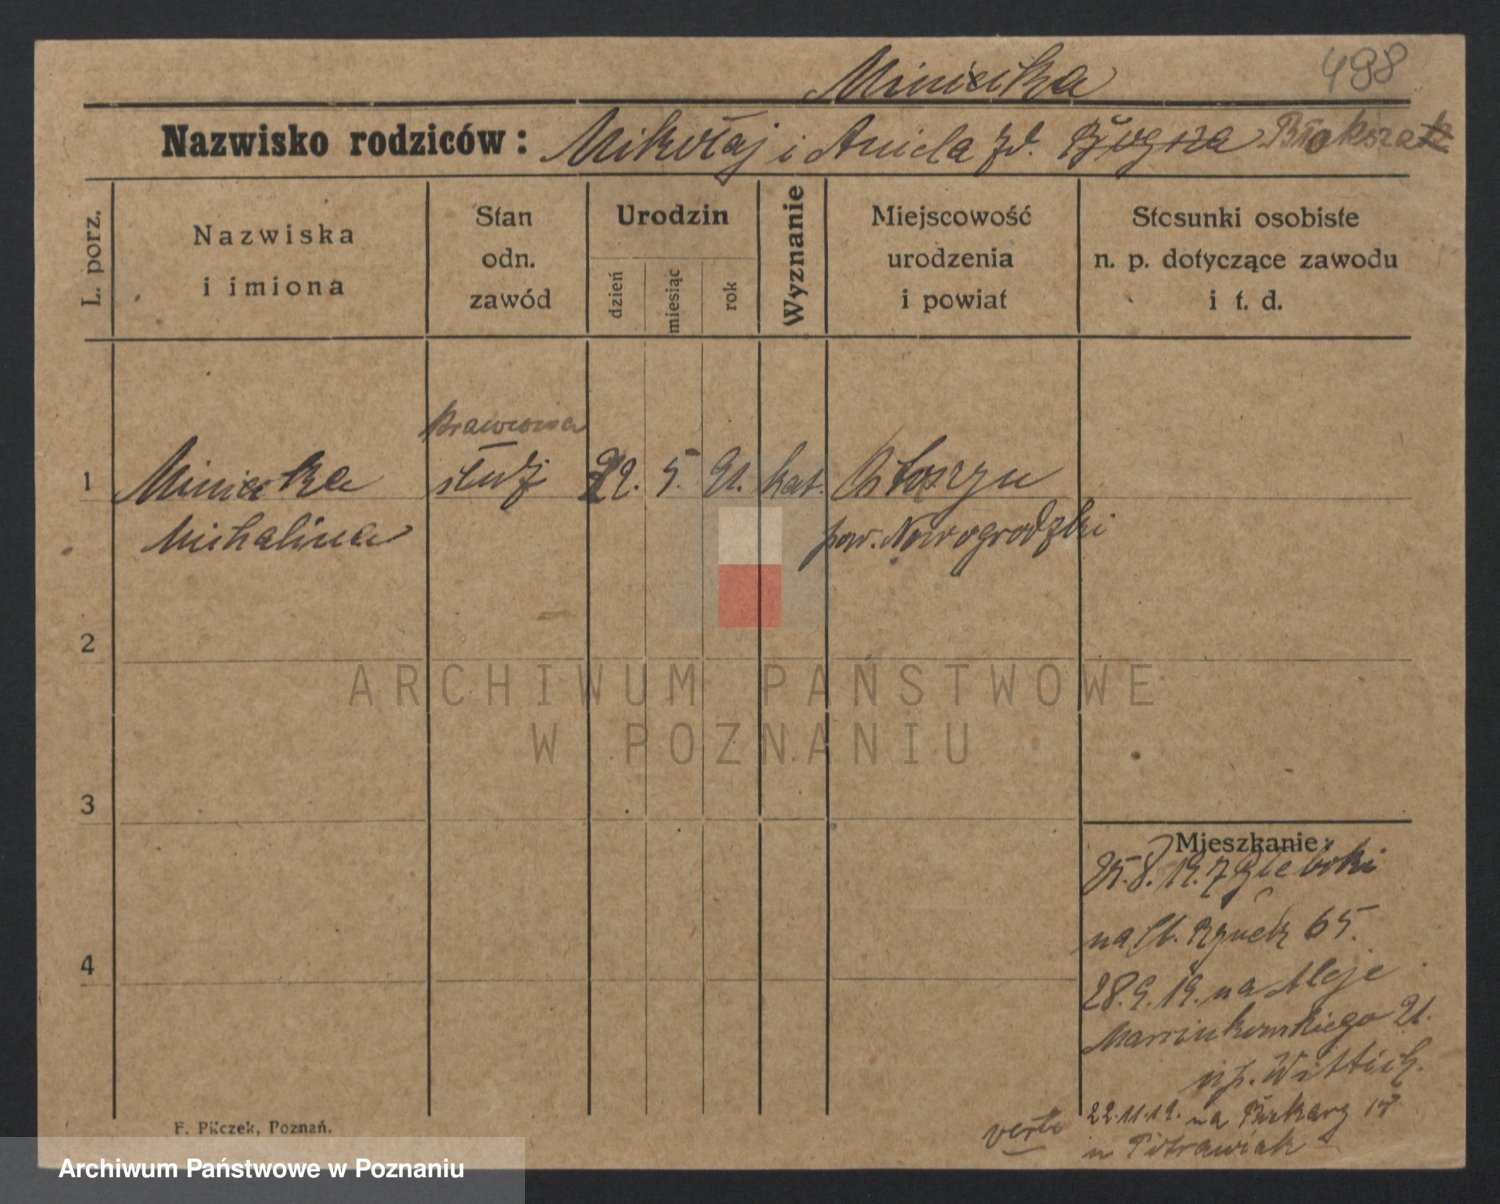 Miniecka
498
Nazwisko rodziców: Mikołaj i Aniela zd.
L. porz.
Nazwiska
i imiona
Stan
odn.
zawód
Urodzin
dzień
miesiąc
rok
Wyznanie
Miejscowość
urodzenia
i powiat
Stosunki osobiste
n. p. dotyczące zawodu
i t. d.
1
Krawcowa
Miniecka
służ
22. 5. 91. kat.
Michalina
pow. Nowogrodzki
2
3
4
Mieszkanie:
25.8.19. z
na St. Rynek 65.
28.9.19. na Aleje
Marcinkowskiego 21.
u p. Wittich.
22.11.19. na Piekary 17
u Pietrawiak
verte
F. Pilczek, Poznań.
ARCHIWUM PAŃSTWOWE
W POZNANIU
Archiwum Państwowe w Poznaniu